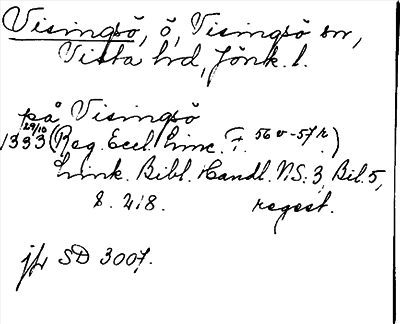 Visingsö, ö, Visingsö sn,
Vista hd, Jönk. l.
på Visingsö
1333 29/10 (Reg. Eccl. Linc. F. 56 v-57 r)
Link. Bibl. Handl. N.S: 3, Bil. 5,
s. 218. regest.
jfr SD 3007.